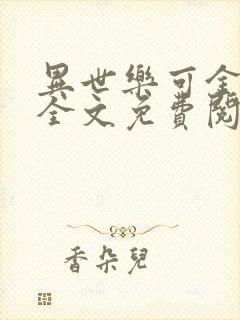 異世樂可全
全文免費閱
香朵兒